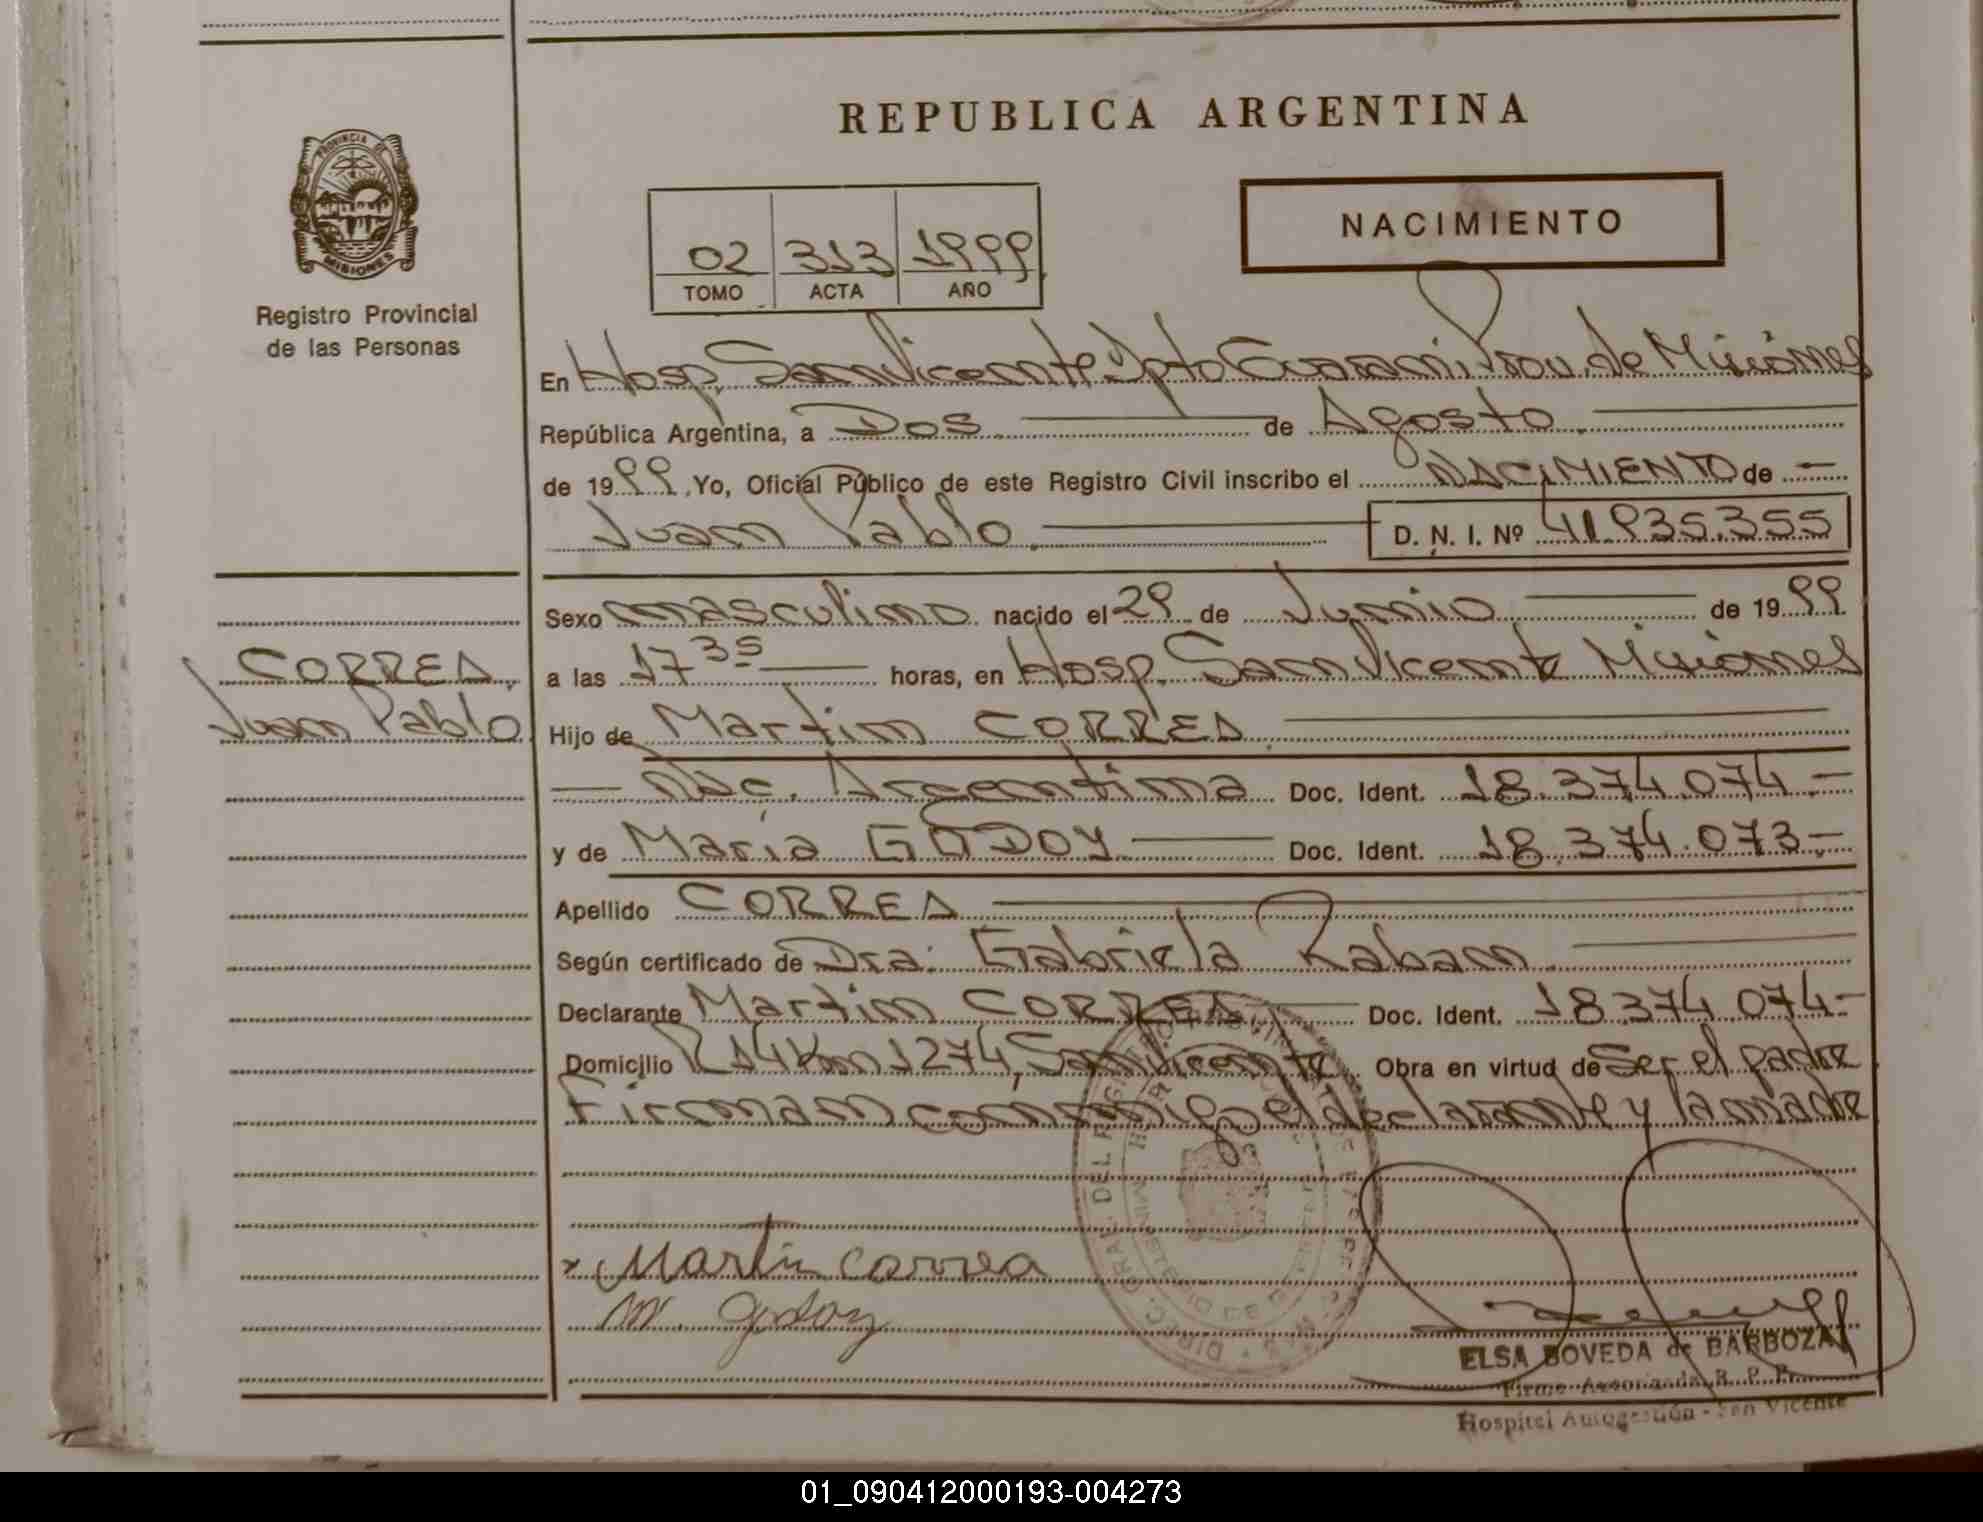 REPUBLICA ARGENTINA
PROVINCIA DE
MISIONES
Registro Provincial
de las Personas
NACIMIENTO
02 313 1999
TOMO ACTA AÑO
En Hosp. San Vicente Dpto Guarani Prov. de Misiones
República Argentina, a Dos de Agosto
de 1999, Yo, Oficial Público de este Registro Civil inscribo el NACIMIENTO de
Juan Pablo. D. N. I. Nº 41.935.355
Sexo masculino nacido el 29 de Junio de 1999
a las 17 35 horas, en Hosp. San Vicente Misiones
CORREA.
Juan Pablo
Hijo de Martin CORREA.
Nac. Argentina Doc. Ident. 18.374.074.-
y de Maria GODOY Doc. Ident. 18.374.073.-
Apellido CORREA
Según certificado de Dra: Gabriela Raban
Declarante Martin CORREA Doc. Ident. 18.374.074-
Domicilio R14 Km 1274, San Vicente Obra en virtud de Ser el padre
Firman conmigo el declarante y la madre
x Martin Correa
M. Godoy
ELSA BOVEDA de BARBOZA
Firma Autorizada R. P. P.
Hospital Autogestión - San Vicente
01_090412000193-004273